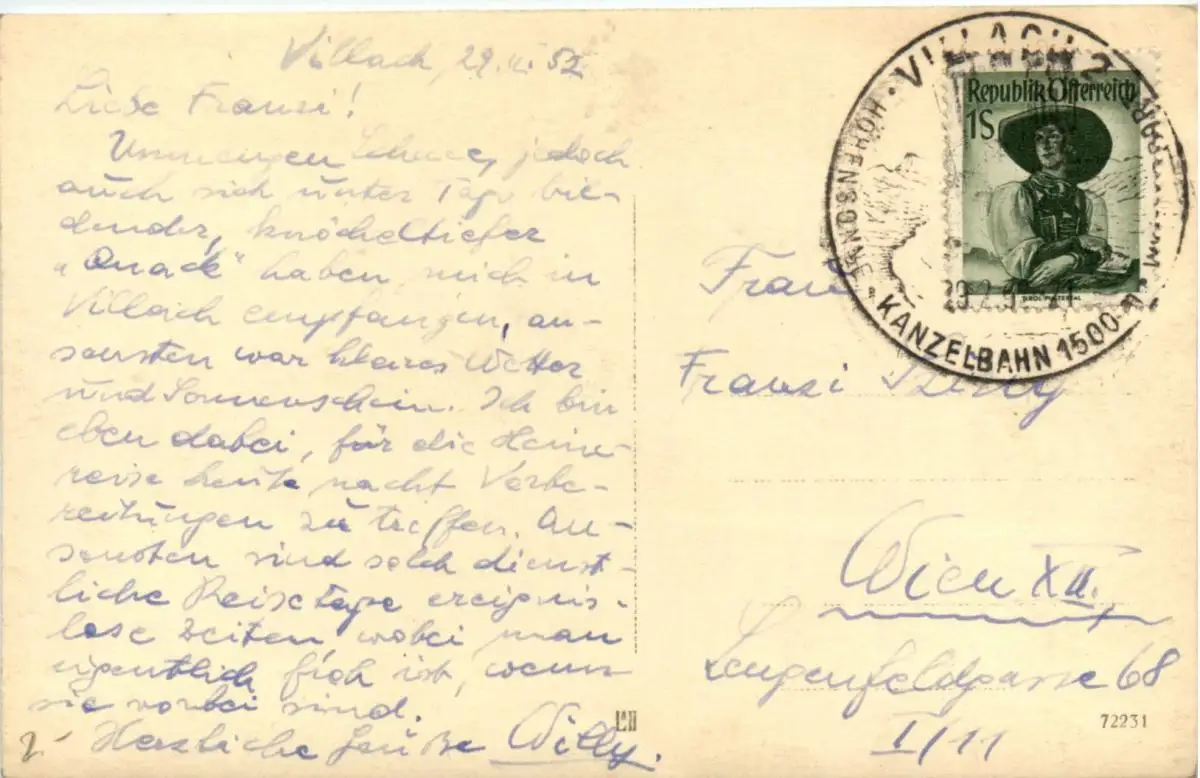 Villach, 29. II. 52
Liebe Franzi!
Unmengen Schnee, jedoch
auch sich unter Tags bil-
dender, knöcheltiefer
"Quack" haben mich in
Villach empfangen, an-
sonsten war klares Wetter
und Sonnenschein. Ich bin
eben dabei, für die Heim-
reise heute nacht Vorbe-
reitungen zu treffen. An-
sonsten sind solch dienst-
liche Reisetage ereignis-
lose Zeiten, wobei man
eigentlich froh ist, wenn
sie vorbei sind.
Herzliche Grüße Willy.
VILLACH 2
HÖHENSONNE
KANZELBAHN 1500 m
29.2.5
Republik Österreich
1S
TIROL PUSTERTAL
Frau
Franzi
Wien XII.
Längenfeldgasse 68
I/11
72231